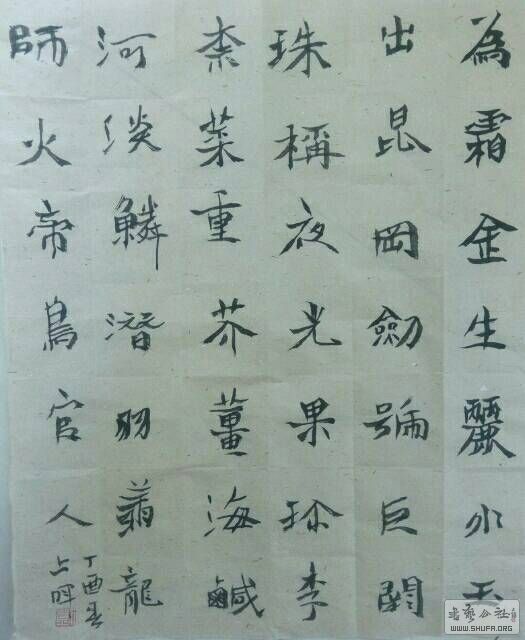 為霜金生麗水玉
出昆岡劍號巨闕
珠稱夜光果珍李
柰菜重芥薑海鹹
河淡鱗潛羽翔龍
師火帝鳥官人
丁酉春
书艺公社
WWW.SHUFA.ORG